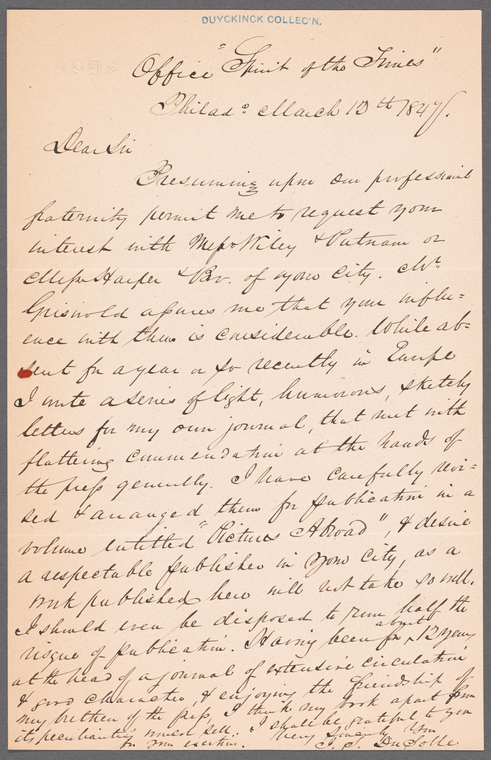 DUYCKINCK COLLEC'N.
Office "Spirit of the Times"
Philada. March 12th 1847.
Dear Sir
Presuming upon our professional
fraternity permit me to request your
interest with Messrs Wiley & Putnam or
Messrs Harper & Bro. of your city. Mr.
Griswold assures me that your influ=
ence with them is considerable. While ab=
sent for a year or so recently in Europe
I wrote a series of light, humorous, sketchy
letters for my own journal, that met with
flattering commendation at the hands of
the press generally. I have carefully revi=
sed & arranged them for publication in a
volume entitled "Pictures Abroad", & desire
a respectable publisher in your city, as a
work published here will not take so well.
I should even be disposed to run half the
risque of publication. Having been for about 12 years
at the head of a journal of extensive circulation
& good character, & enjoying the friendship of
my brethren of the press, I think my book apart from
its peculiarities would sell. I shall be grateful to you
for your exertion. Very Sincerely Yrs
J. S. Du Solle